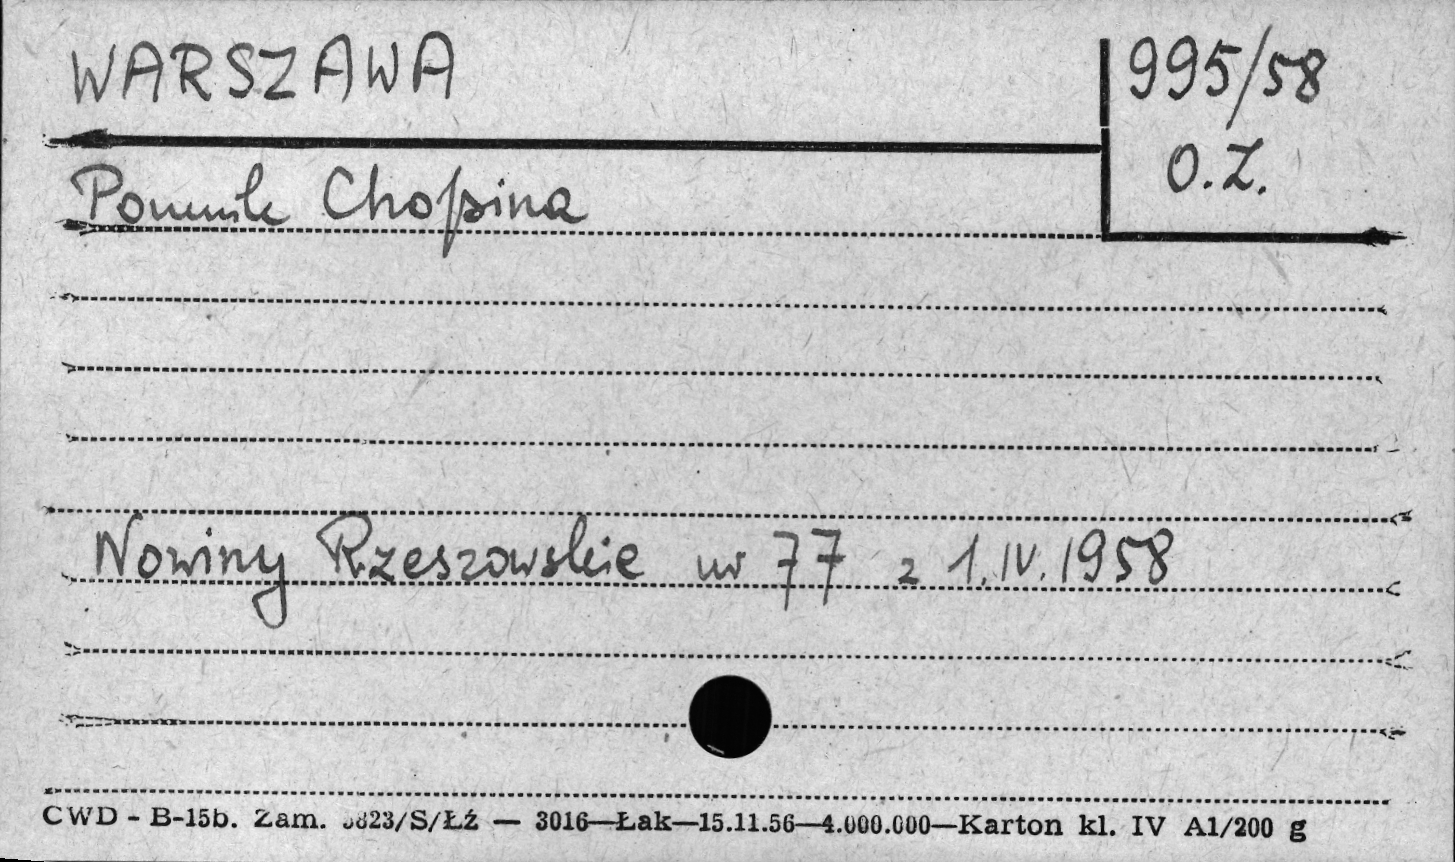 WARSZAWA
995/58
O.Z.
Pomnik Chopina
Nowiny Rzeszowskie nr 77 z 1.IV.1958
CWD - B-15b. Zam. 3823/S/Łź — 3016—Łak—15.11.56—4.000.000—Karton kl. IV A1/200 g